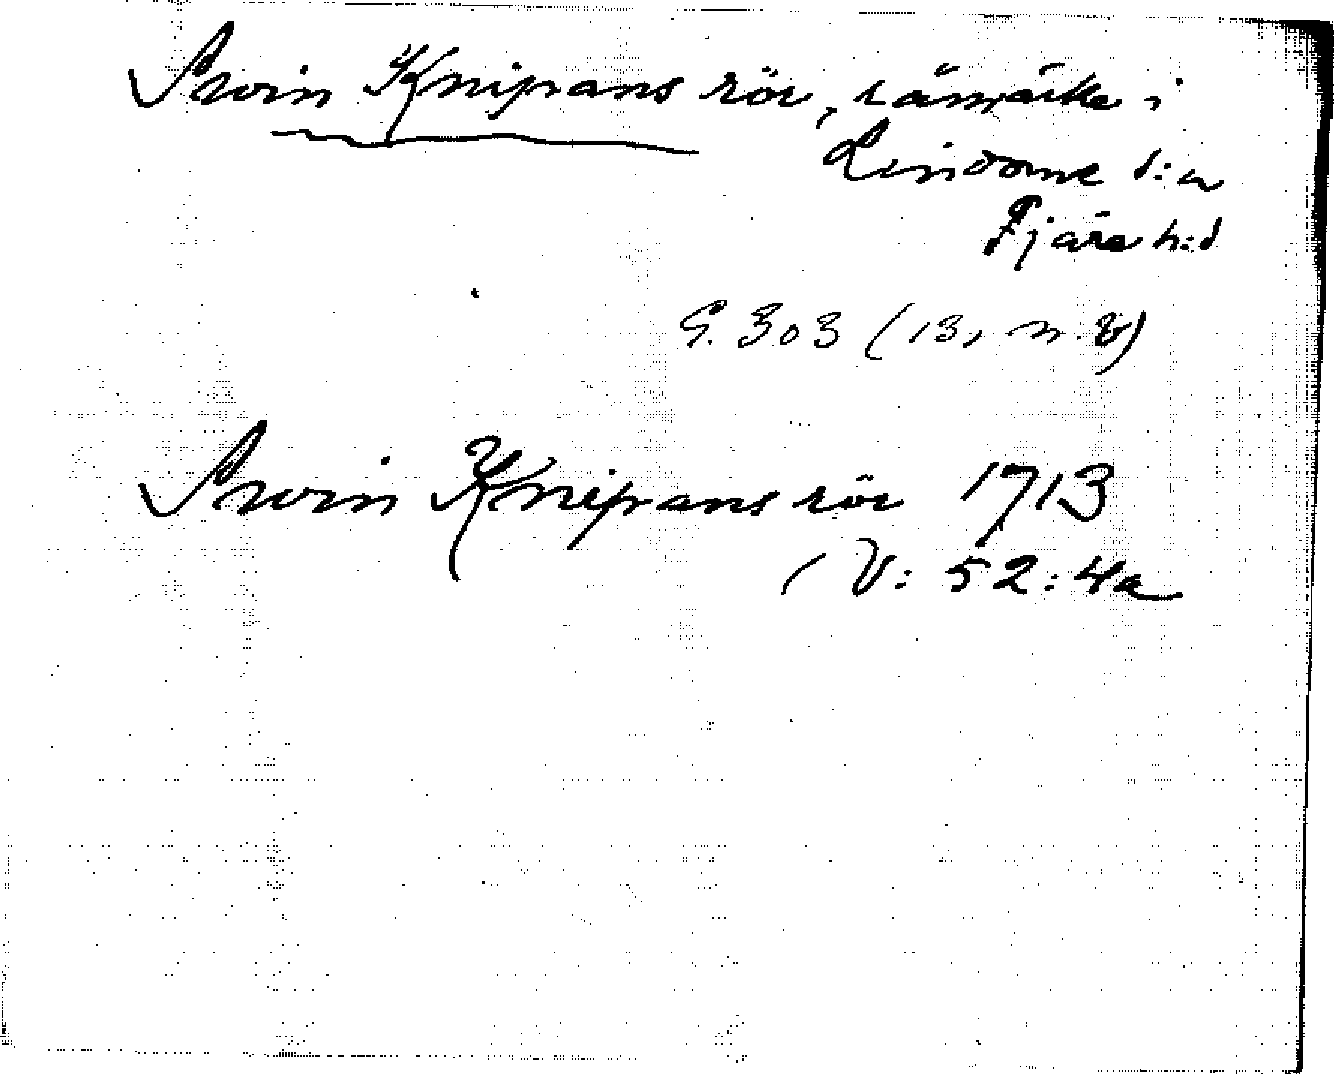 Swin Knipans rör, råmärke i
Lindome s:n
Fjäre h:d
S. 303 (13, n. v)
Swin Knipans rör 1713
(V: 52: 4a